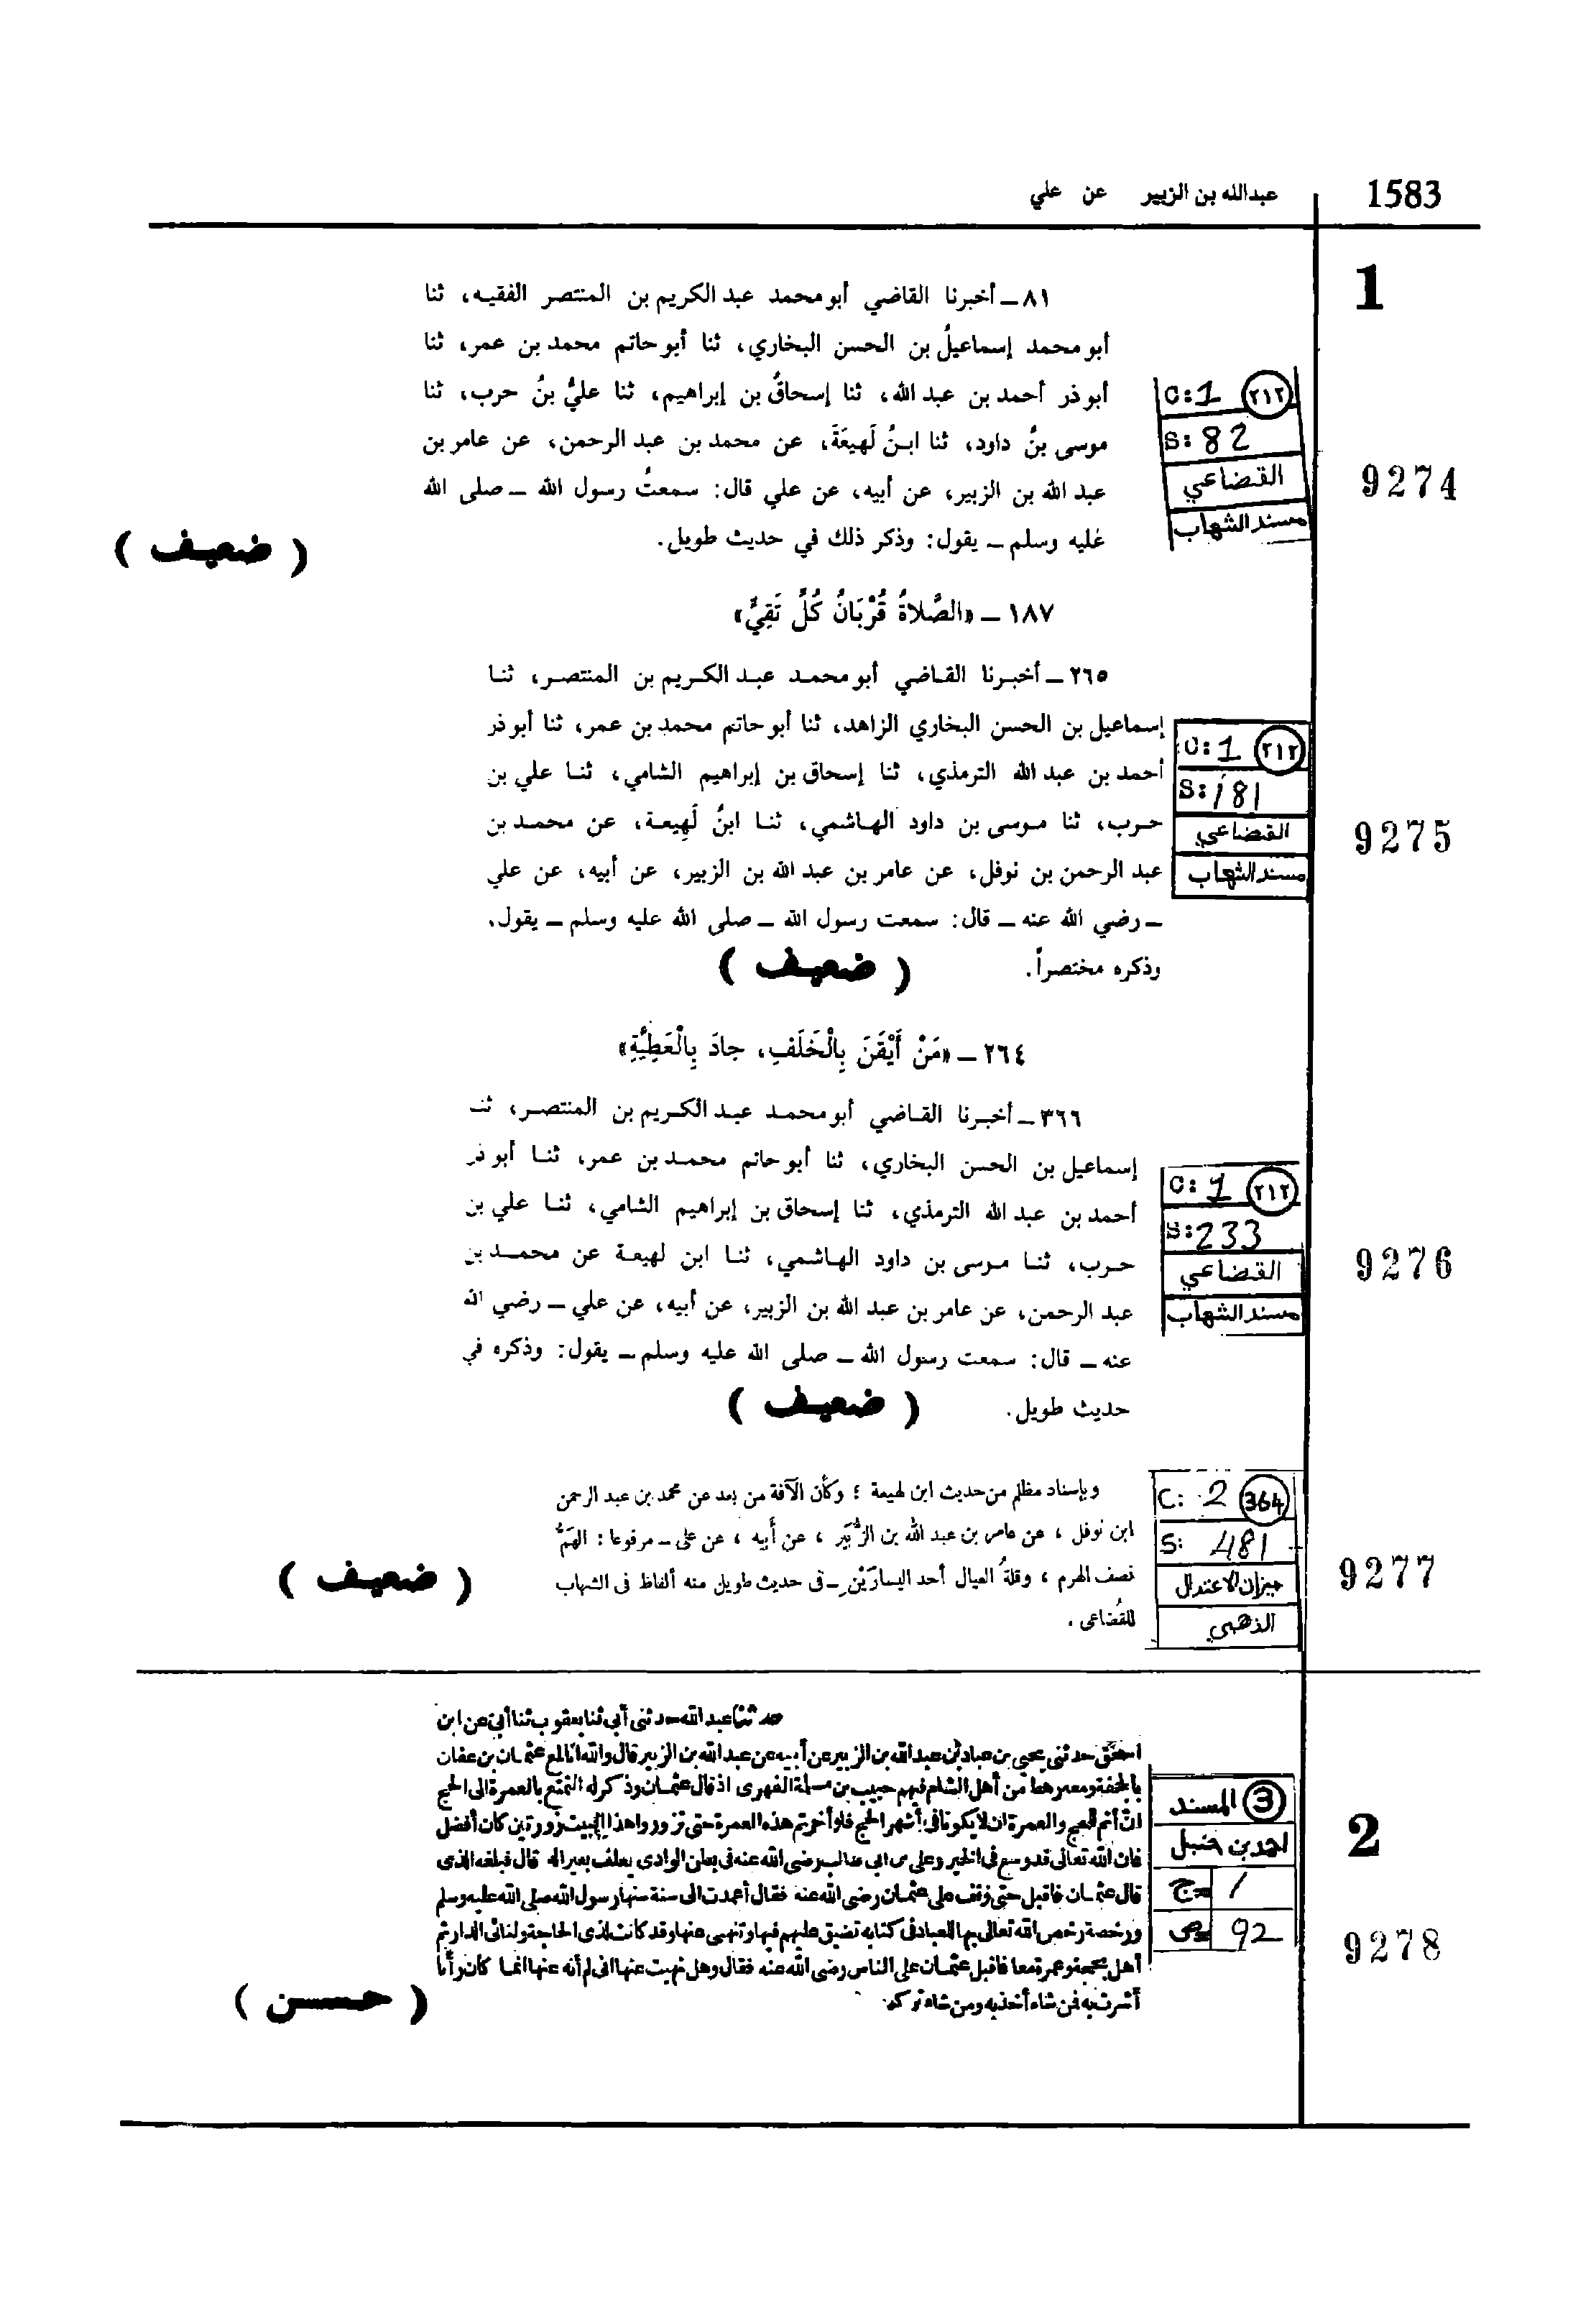 1583
عبدالله بن الزبير عن علي
1
٨١ ـ أخبرنا القاضي أبو محمد عبد الكريم بن المنتصر الفقيه، ثنا
أبو محمد إسماعيلُ بن الحسن البخاري، ثنا أبو حاتم محمد بن عمر، ثنا
أبو ذر أحمد بن عبد الله، ثنا إسحاقُ بن إبراهيم، ثنا عليُّ بنُ حرب، ثنا
موسى بنُ داود، ثنا ابنُ لَهيعَةَ، عن محمد بن عبد الرحمن، عن عامر بن
عبد الله بن الزبير، عن أبيه، عن علي قال: سمعتُ رسول الله ـ صلى الله
عليه وسلم ـ يقول: وذكر ذلك في حديث طويل.
( ضعيف )
C: 1 ٢١٢
S: 82
القضاعي
مسند الشهاب
9274
١٨٧ ـ «الصَّلاةُ قُرْبَانُ كُلِّ تَقِيٍّ»
٢٦٥ ـ أخبرنا القاضي أبو محمد عبد الكريم بن المنتصر، ثنا
إسماعيل بن الحسن البخاري الزاهد، ثنا أبو حاتم محمد بن عمر، ثنا أبو ذر
أحمد بن عبد الله الترمذي، ثنا إسحاق بن إبراهيم الشامي، ثنا علي بن
حرب، ثنا موسى بن داود الهاشمي، ثنا ابنُ لَهِيعة، عن محمد بن
عبد الرحمن بن نوفل، عن عامر بن عبد الله بن الزبير، عن أبيه، عن علي
ـ رضي الله عنه ـ قال: سمعت رسول الله ـ صلى الله عليه وسلم ـ يقول.
وذكره مختصراً.
( ضعيف )
C: 1 ٢١٢
S: 181
القضاعي
مسند الشهاب
9275
٢٦٤ ـ «مَنْ أَيْقَنَ بِالْخَلَفِ، جادَ بِالْعَطِيَّةِ»
٣٦٦ ـ أخبرنا القاضي أبو محمد عبد الكريم بن المنتصر، ثنـ
إسماعيل بن الحسن البخاري، ثنا أبو حاتم محمد بن عمر، ثنا أبو ذر
أحمد بن عبد الله الترمذي، ثنا إسحاق بن إبراهيم الشامي، ثنا علي بن
حرب، ثنا موسى بن داود الهاشمي، ثنا ابن لهيعة عن محمد بن
عبد الرحمن، عن عامر بن عبد الله بن الزبير، عن أبيه، عن علي ـ رضي الله
عنه ـ قال: سمعت رسول الله ـ صلى الله عليه وسلم ـ يقول: وذكره في
حديث طويل.
( ضعيف )
C: 1 ٢١٢
S: 233
القضاعي
مسند الشهاب
9276
وبإسناد مظلم من حديث ابن لهيعة ؛ وكأن الآفة من بعد عن محمد بن عبد الرحمن
ابن نوفل ، عن عامر بن عبد الله بن الزُّبَيْر ، عن أبيه ، عن على ـ مرفوعا : الهَمُّ
نصف الهرم ، وقلةُ العيال أحد اليسارَيْن ـ فى حديث طويل منه ألفاظ فى الشهاب
للقُضاعى .
( ضعيف )
C: 2 364
S: 481
ميزان الاعتدال
الذهبي
9277
حدثنا عبد الله حدثنى أبى ثنا يعقوب ثنا أبى عن ابن
اسحق حدثنى يحيى بن عباد بن عبد الله بن الزبير عن أبيه عن عبد الله بن الزبير قال والله انا لمع عثمان بن عفان
بالجحفة ومعه رهط من أهل الشام فيهم حبيب بن مسلمة الفهرى اذ قال عثمان وذكر له التمتع بالعمرة الى الحج
ان أتم للحج والعمرة ان لا يكونا فى أشهر الحج فلو أخرتم هذه العمرة حتى تزوروا هذا البيت زورتين كان أفضل
فان الله تعالى قد وسع فى الخير وعلى بن ابى طالب رضى الله عنه فى بطن الوادى يعلف بعيرا له قال فبلغه الذى
قال عثمان فاقبل حتى وقف على عثمان رضى الله عنه فقال أعمدت الى سنة سنها رسول الله صلى الله عليه وسلم
ورخصة رخص الله تعالى بها للعباد فى كتابه تضيق عليهم فيها وتنهى عنها وقد كانت لذى الحاجة ولنائى الدار ثم
أهل بحجة وعمرة معا فاقبل عثمان على الناس رضى الله عنه فقال وهل نهيت عنها انى لم أنه عنها انما كان رأيا
أشرت به فمن شاء أخذ به ومن شاء تركه
( حسن )
3 المسند
احمد بن حنبل
ج 1
ص 92
2
9278